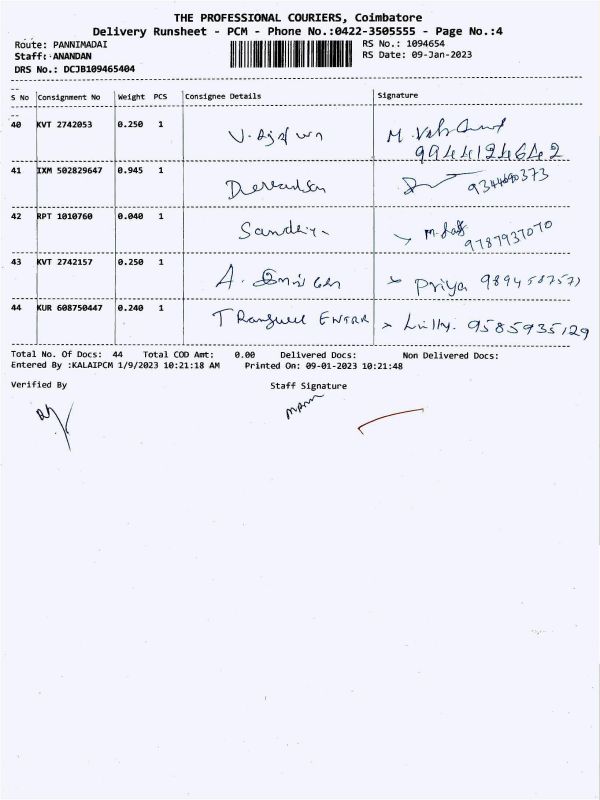 THE PROFESSIONAL COURIERS, Coimbatore
Delivery Runsheet - PCM - Phone No.:0422-3505555 - Page No.:4
Route: PANNIMADAI
Staff: ANANDAN
DRS No.: DCJB109465404
RS No.: 1094654
RS Date: 09-Jan-2023
S No Consignment No Weight PCS Consignee Details Signature
40 KVT 2742053 0.250 1
9944124642
41 IXM 502829647 0.945 1 Devendran
42 RPT 1010760 0.040 1 Sandhiya
9787937070
43 KVT 2742157 0.250 1 A. Priya
44 KUR 608750447 0.240 1 Lilly. 9585935129
Total No. Of Docs: 44 Total COD Amt: 0.00 Delivered Docs: Non Delivered Docs:
Entered By :KALAIPCM 1/9/2023 10:21:18 AM Printed On: 09-01-2023 10:21:48
Verified By Staff Signature